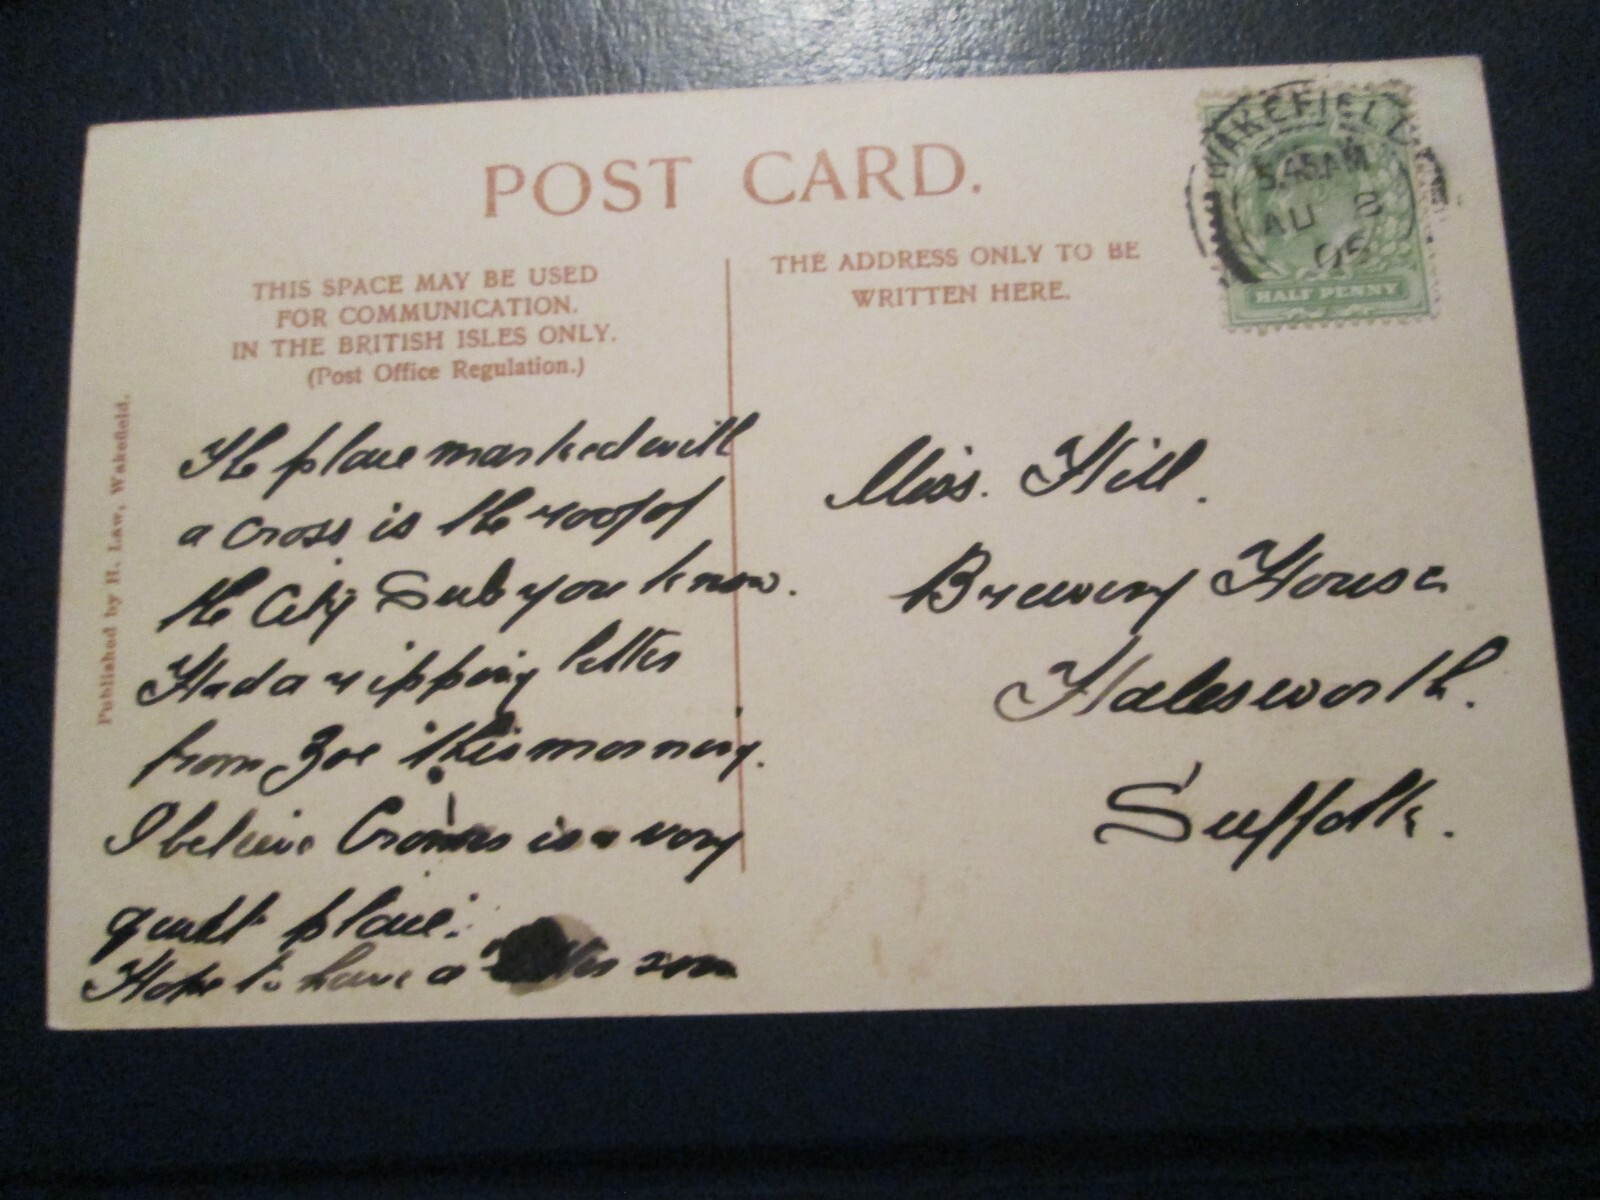 POST CARD.
THIS SPACE MAY BE USED
FOR COMMUNICATION.
IN THE BRITISH ISLES ONLY.
(Post Office Regulation.)
THE ADDRESS ONLY TO BE
WRITTEN HERE.
WAKEFIELD
5.45AM
AU 8
05
HALF PENNY
Published by H. Law, Wakefield.
The place marked with
a cross is the roof of
the City Sub you know.
Had a ripping letter
from Zoe this morning.
I believe is a very
quiet place.
Hope to have a letter soon
Miss. Hill.
Brewery House
Halesworth.
Suffolk.